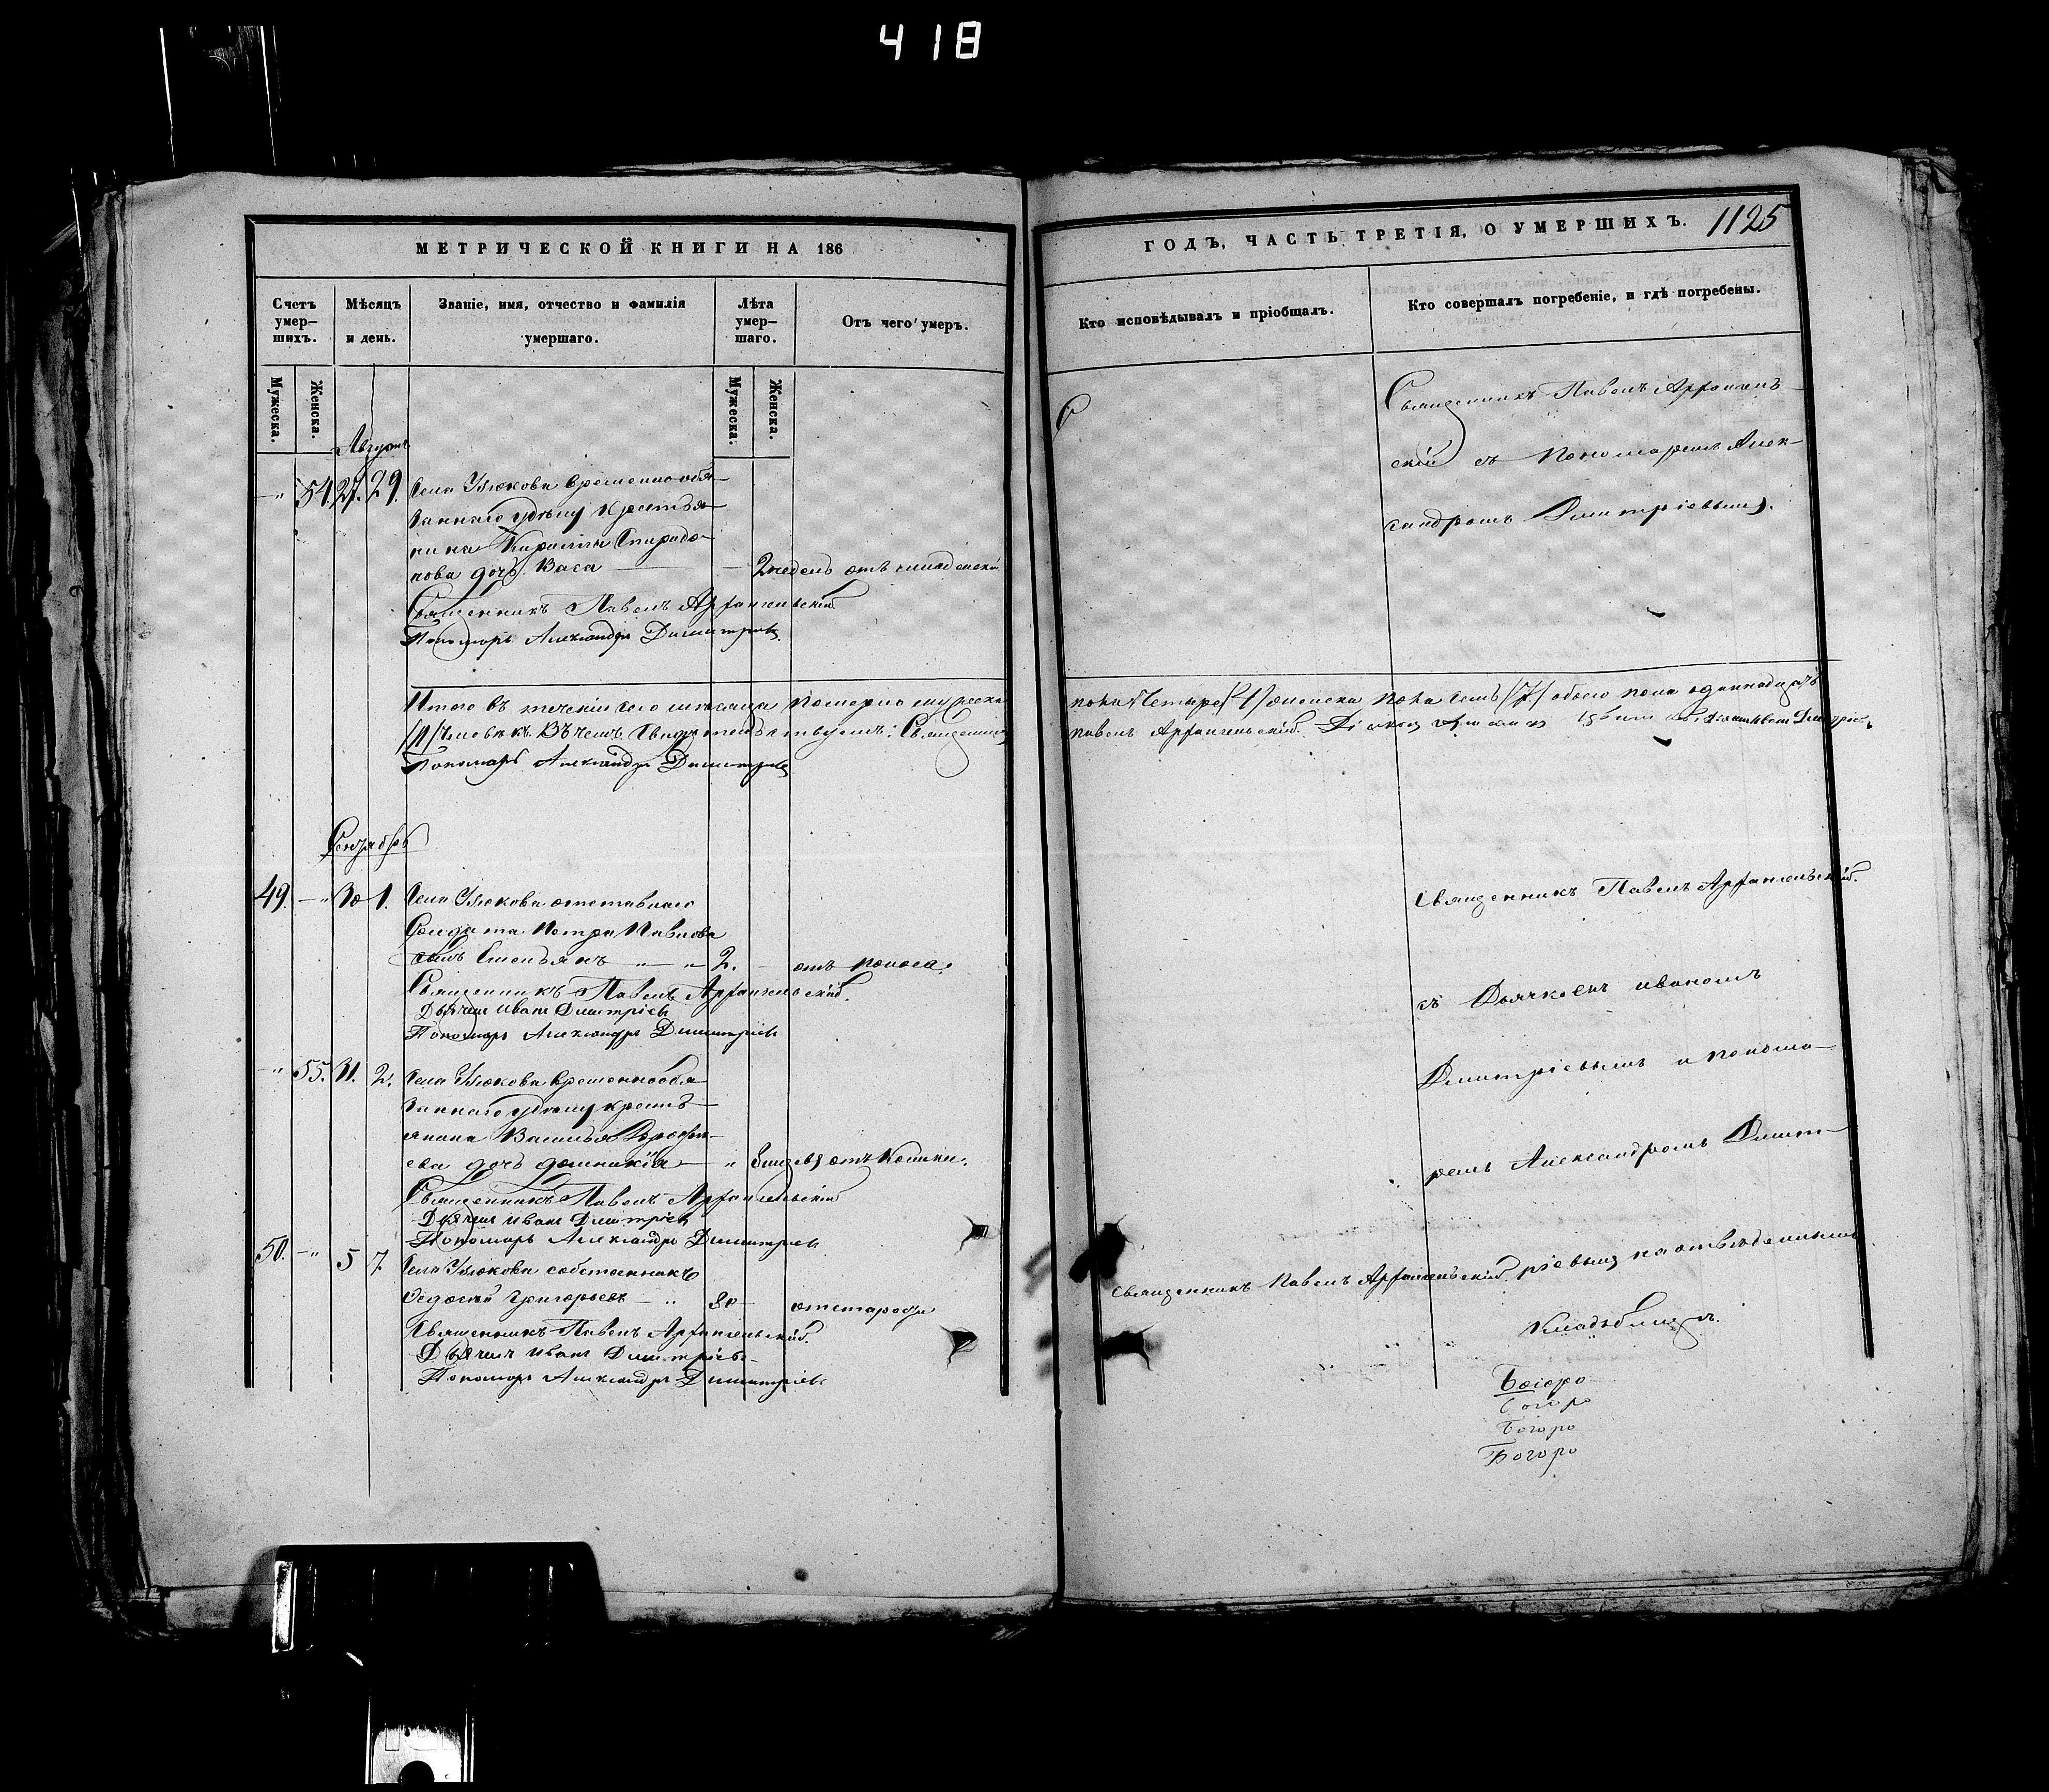 418
МЕТРИЧЕСКОЙ КНИГИ НА 186
Счетъ умер-шихъ.
Мѣсяцъ и день.
Званіе, имя, отчество и фамилія умершаго.
Лѣта умер-шаго.
Отъ чего умеръ.
Мужеска.
Женска.
Мужеска.
Женска.
Августъ
54. 27. 29. Села Улюкова временно обя-
заннаго крестья-
нина Кирилы Спиридо-
нова дочь Васа 2 недель отъ
Священникъ Павелъ Архангельскій
Пономарь Александръ Димитріевъ
Итого въ теченіи сего мѣсяца померло мужеска
человѣкъ. Въ чемъ свидетельствуемъ: Священникъ
Пономарь Александръ Димитріевъ
Сентябрь
49. 30 1. Села Улюкова отставнаго
Солдата Петра Павлова
сынъ 2. отъ поноса.
Священникъ Павелъ Архангельскій.
Дьячекъ Иванъ Димитріевъ
Пономарь Александръ Димитріевъ
55. 31. 2. Села Улюкова временнообя-
заннаго крестъ-
янина Василья
ева дочь
Священникъ Павелъ Архангельскій
Дьячекъ Иванъ Димитріевъ
Пономарь Александръ Димитріевъ
50. 5 7. Села Улюкова собственникъ
Федосѣй Григорьевъ 80 отъ старости
Священникъ Павелъ Архангельскій.
Дьячекъ Иванъ Димитріевъ
Пономарь Александръ Димитріевъ
ГОДЪ, ЧАСТЬ ТРЕТІЯ, О УМЕРШИХЪ. 1125
Кто исповѣдывалъ и пріобщалъ.
Кто совершалъ погребеніе, и гдѣ погребены.
С
Священникъ Павелъ Архангель-
скій съ Пономаремъ Алек-
сандромъ Димитріевымъ.
пола Четыре /4/ женска пола семь /7/ обоего пола одиннадцать
Павелъ Архангельскій.
Священникъ Павелъ Архангельскій.
съ Дьячкомъ Иваномъ
Димитріевымъ и понома-
ремъ Александромъ Димит-
ріевымъ на отвѣденномъ
Священникъ Павелъ Архангельскій.
Кладбищѣ.
Богоро
Богоро
Богоро
Богоро